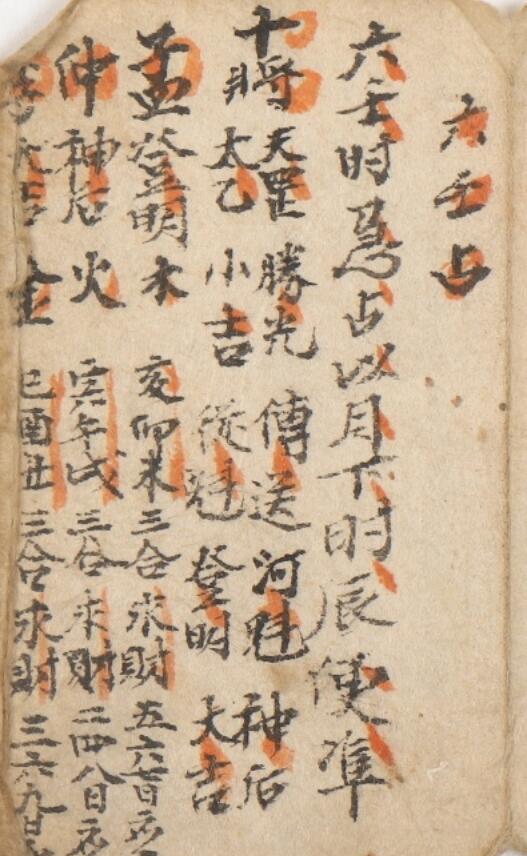 六壬占
六壬时急占以月下时辰便準
十將
天罡 勝光 傳送 河魁 神后
太乙 小吉 從魁 登明 大吉
孟登明木 亥卯未三合求財五六七日
仲神后火 寅午戌三合求財二四八日
吉金 巳酉丑三合求財三六九日